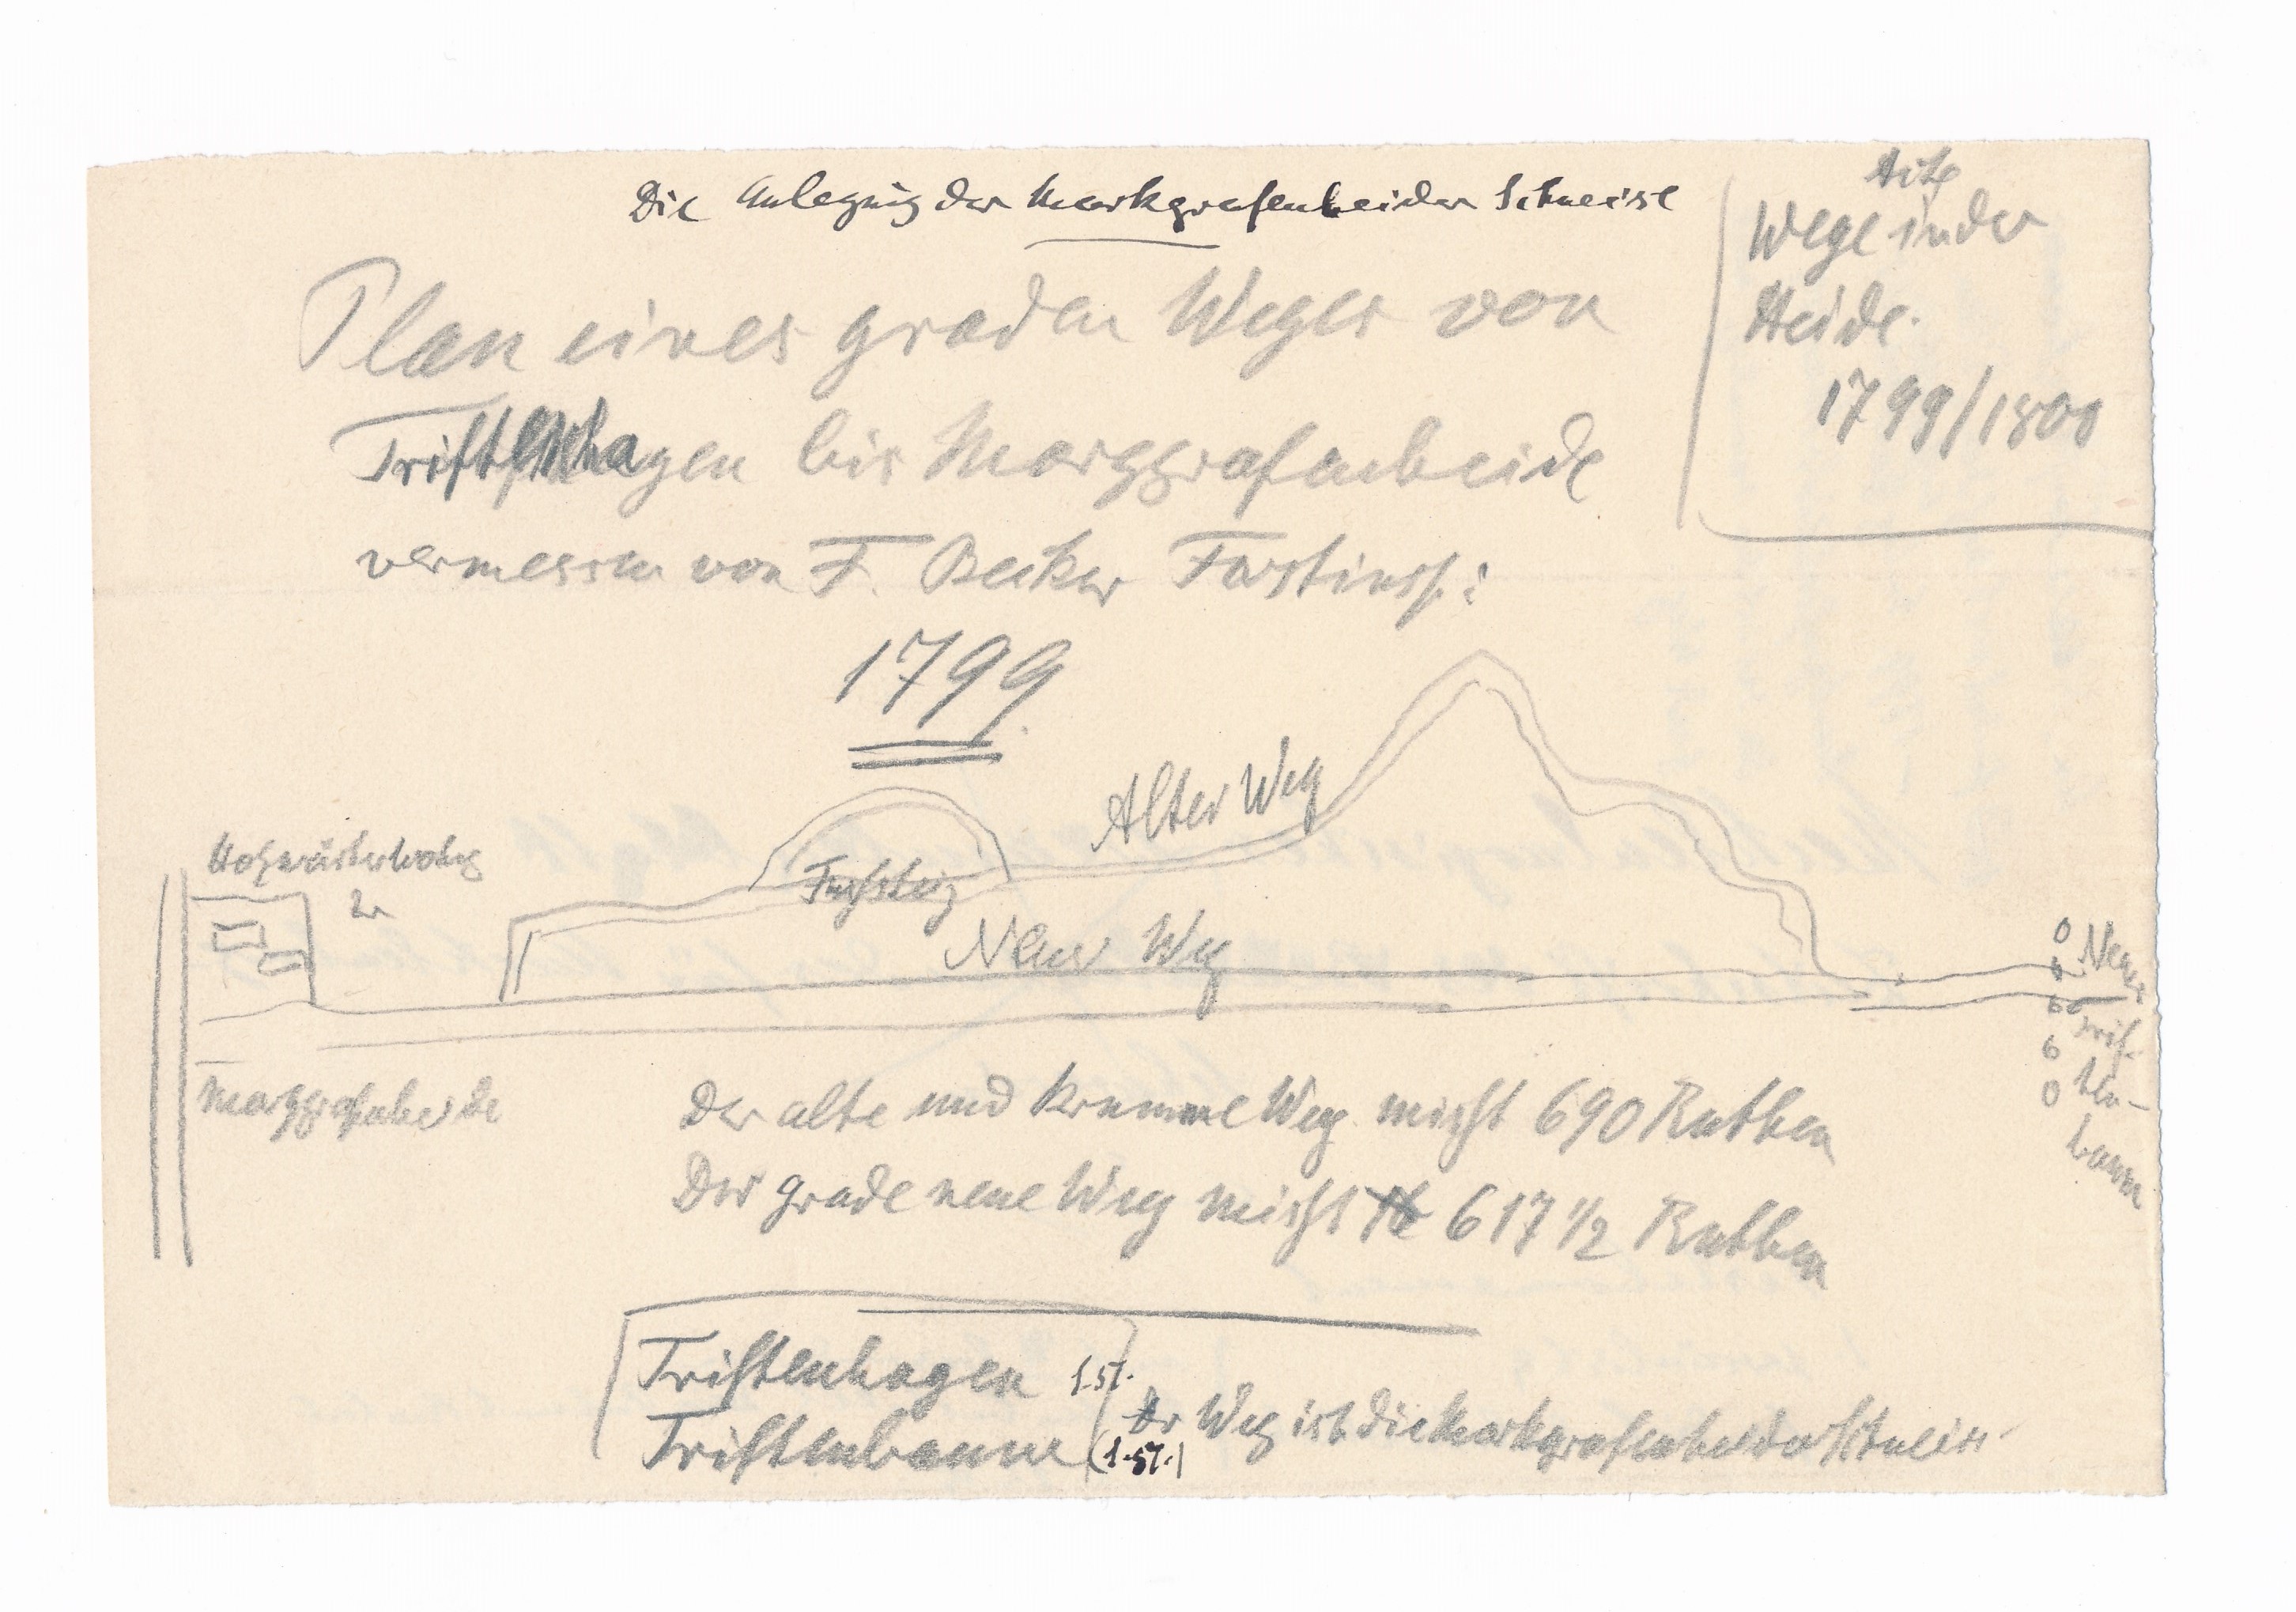 Die Anlegung der Markgrafenheider Schneise
Akte
Wege in der
Heide.
1799/1800
Plan eines graden Weges von
hagen bis Marggrafenheide
vermessen von F. Becker Forstinsp:
1799.
Alter Weg
Fußsteig
Neuer Weg
Holzwärterwohng
Marggrafenheide
Neuer
Trif-
ten-
baum
Der alte und krumme Weg mißt 690 Ruthen
Der grade neue Weg mißt 617 1/2 Ruthen
Triftenhagen 1.st.
Triftenbaum (1.st.)
Der Weg ist die Markgrafenheider Schneise